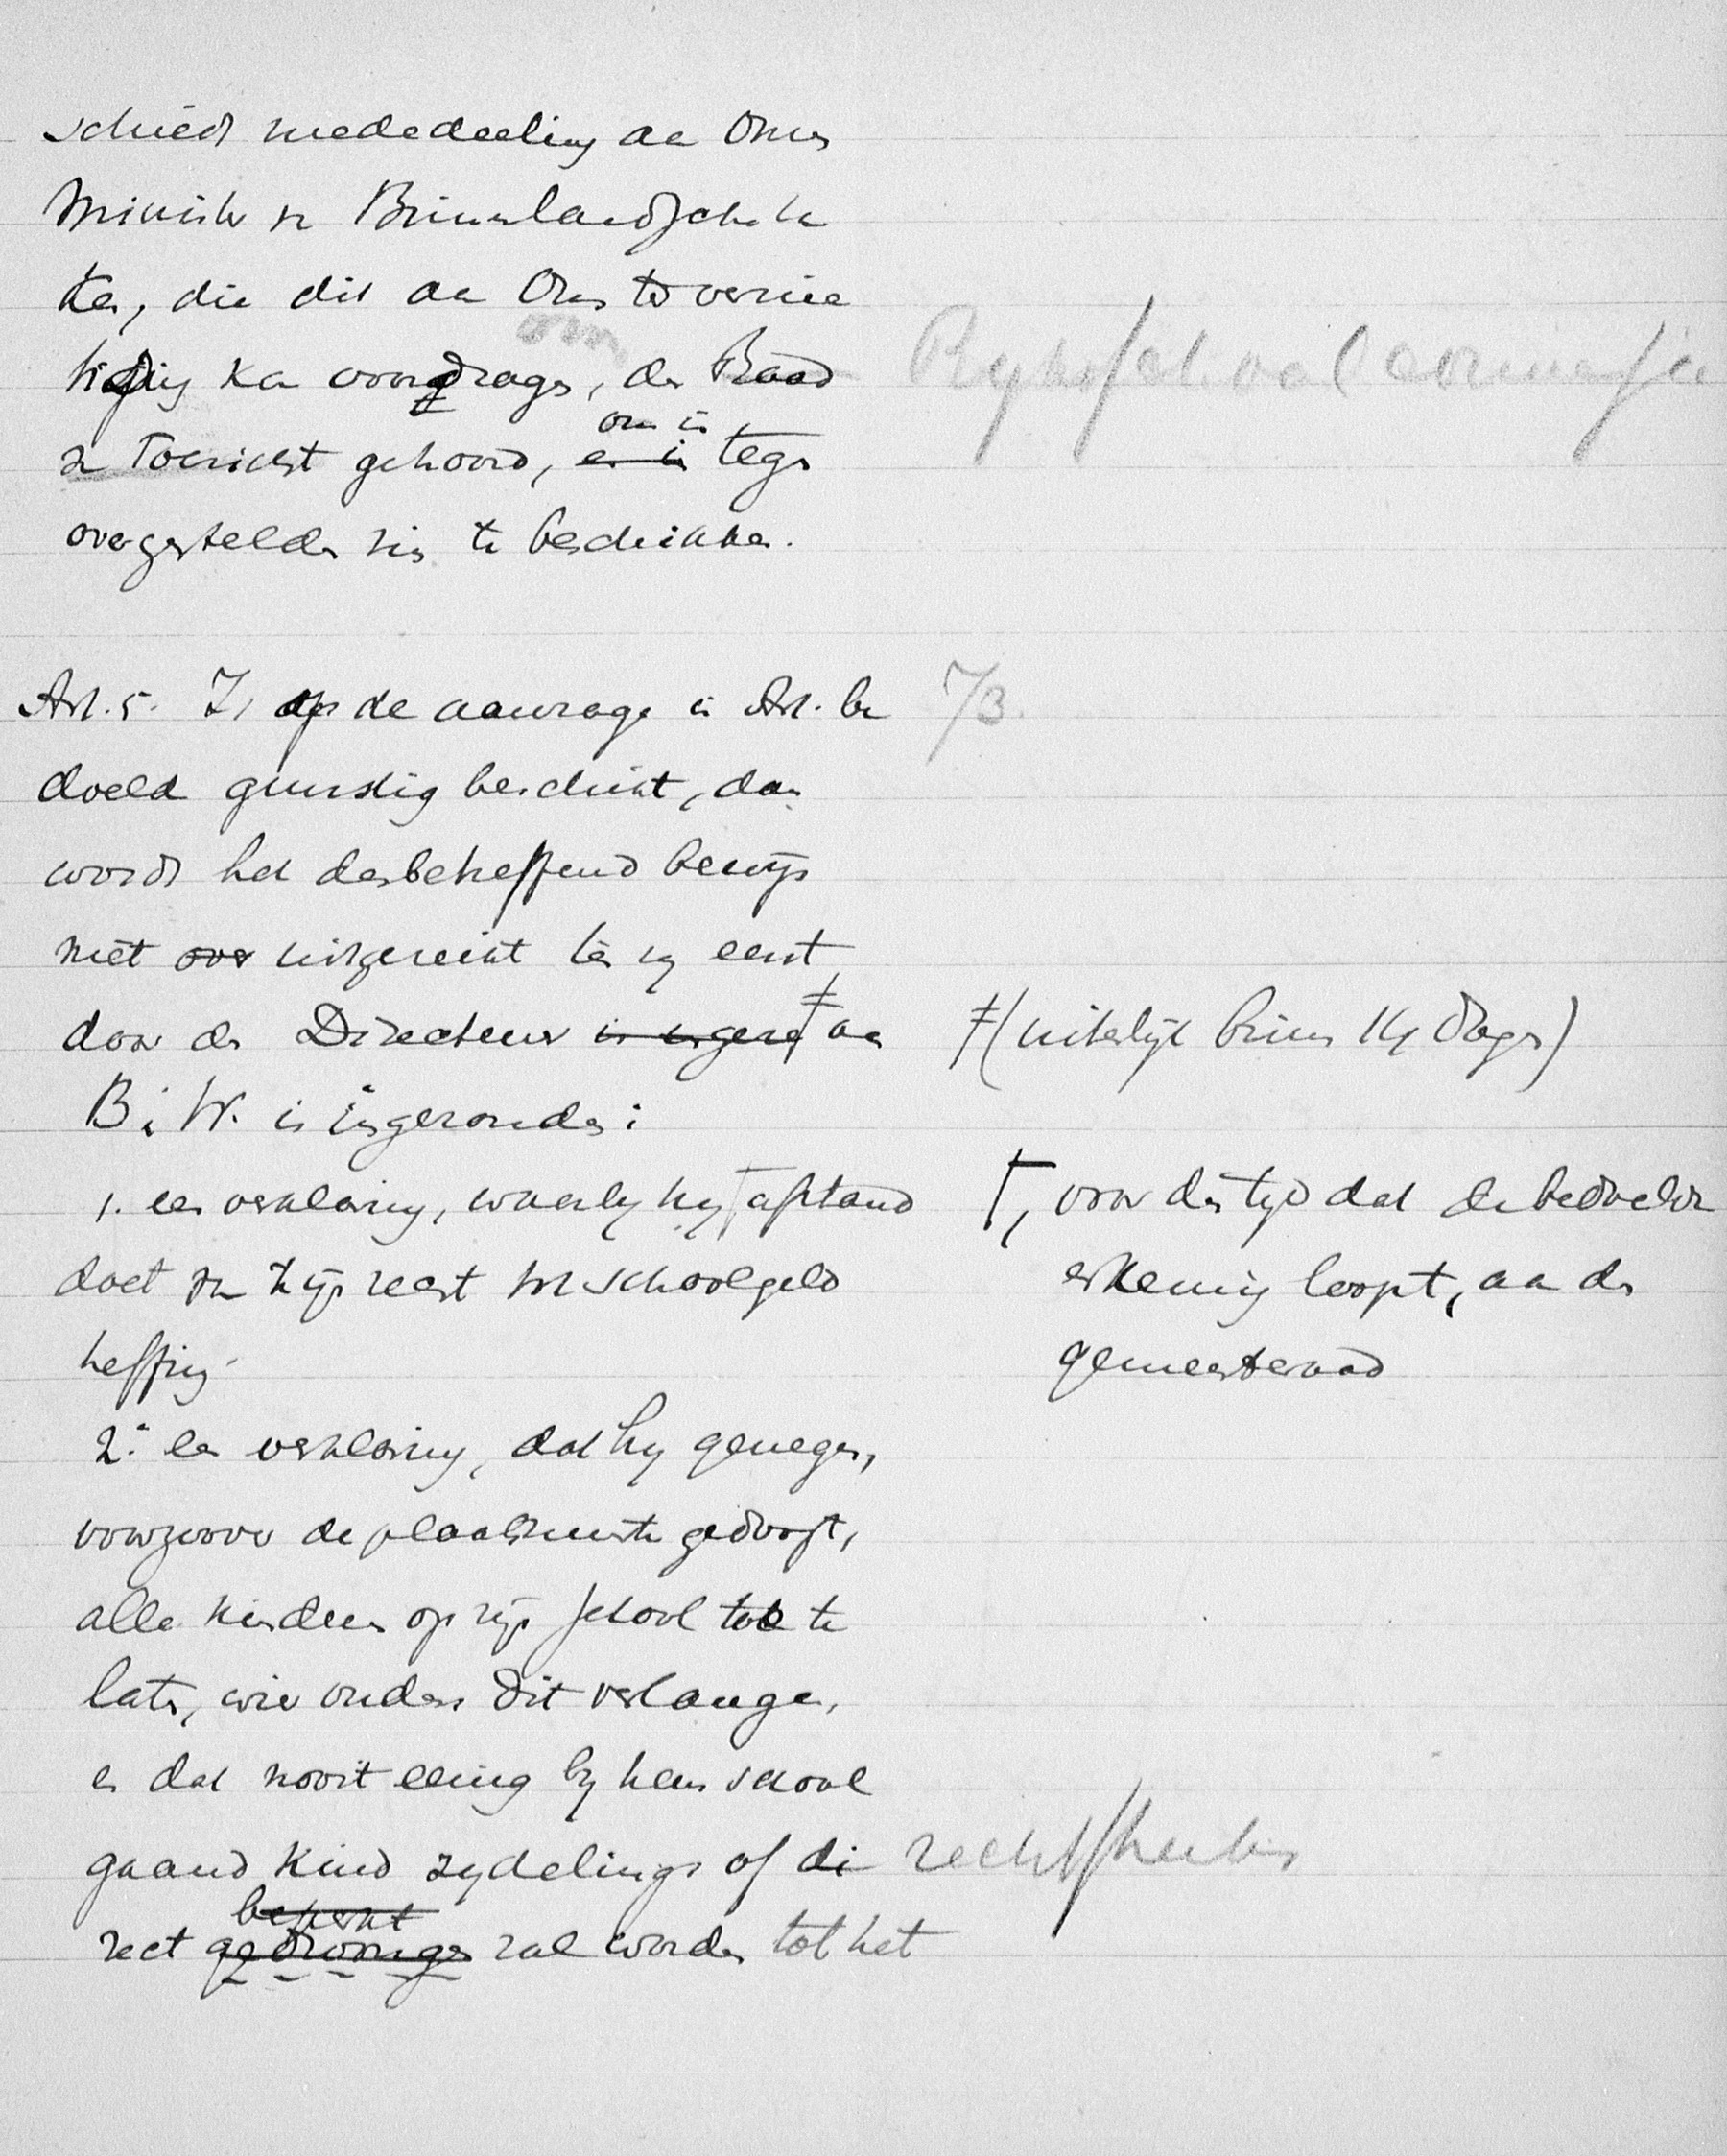 schiedt mededeeling aan Onzen
Minister van Binnenlandsche Za
ken, die dit aan Ons ter vernie
tiging kan voordragen, den Raad
van Toezicht gehoord, en in tegen
om in
overgestelden zin te beschikken.
Rijksschoolcommissie
Art. 5. Is op de aanvrage in Art. be
7/3.
doeld gunstig beschikt, dan
wordt het desbetreffend bewijs
niet over uitgereikt tenzij eerst
door den Directeur is ingere ≠ aan
≠ (uiterlijk binnen 14 dagen)
B. & W. is ingezonden:
1. een verklaring, waarbij hij afstand
doet van zijn recht tot schoolgeld
heffing.
, voor den tijd dat de bedoelde
erkenning loopt, aan den
gemeenteraad
2. een verklaring, dat hij genegen,
voorzoover de plaatsruimte gedoogt,
alle kinderen op zijn school toe te
laten, wier ouders dit verlangen,
en dat nooit eenig bij hem school
gaand kind zydelings of di
rechtstreeks
beperkt
rect gedwongen zal worden tot het